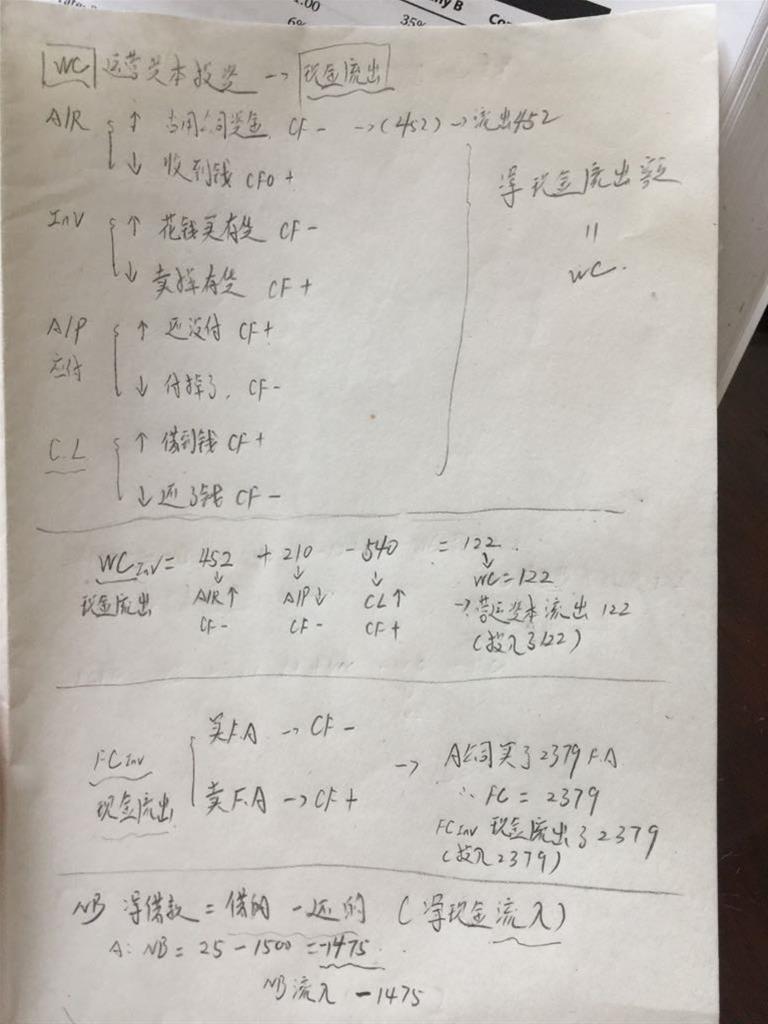 1.00
6%
35%
WC 运营资本投资 → 现金流出
A/R ↑ 占用公司资金 CF - → (452) → 流出452
↓ 收到钱 CFO +
净现金流出额
=
WC.
Inv ↑ 花钱买存货 CF -
↓ 卖掉存货 CF +
A/P ↑ 还没付 CF +
应付
↓ 付掉了. CF -
C.L ↑ 借到钱 CF +
↓ 还了钱 CF -
WC Inv = 452 + 210 - 540 = 122.
现金流出
↓ ↓ ↓ ↓
A/R↑ A/P↓ CL↑ WC=122
CF - CF - CF + → 营运资本流出 122
(投入了122)
FC Inv
现金流出
买F.A → CF -
卖F.A → CF +
→ A公司买了2379 F.A
∴ FC = 2379
FC Inv 现金流出了2379
(投入2379)
NB 净借款 = 借的 - 还的 (净现金流入)
A: NB = 25 - 1500 = -1475.
NB 流入 -1475